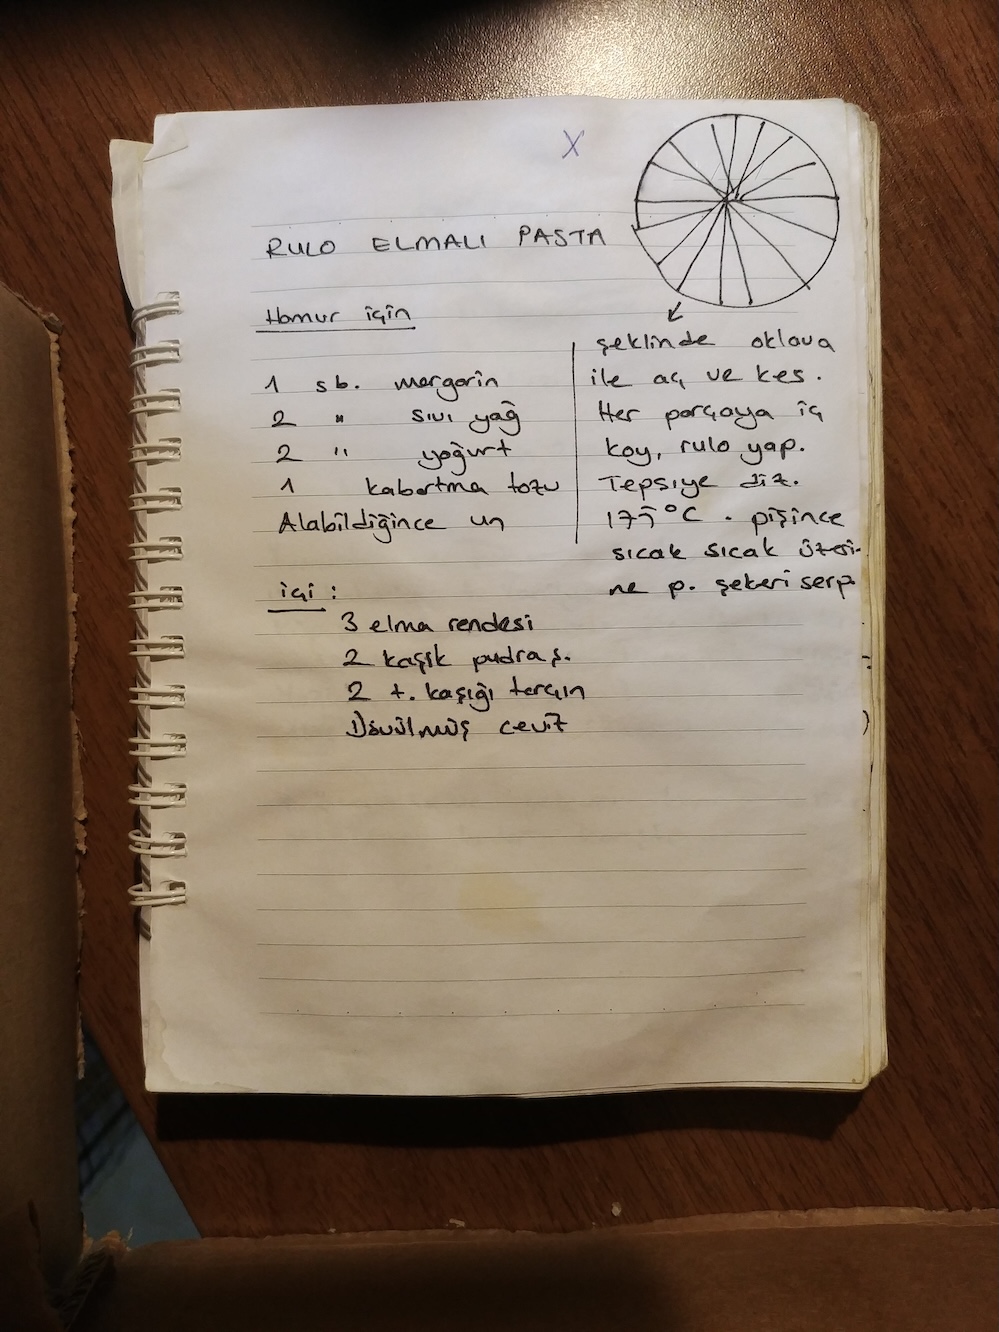 X
RULO ELMALI PASTA
Hamur için
1 sb. margarin
2 " sıvı yağ
2 " yoğurt
1 kabartma tozu
Alabildiğince un
içi :
3 elma rendesi
2 kaşık pudra ş.
2 t. kaşığı tarçın
Dövülmüş ceviz
şeklinde oklava
ile aç ve kes.
Her parçaya iç
koy, rulo yap.
Tepsiye diz.
175°C . pişince
sıcak sıcak üzeri-
ne p. şekeri serp